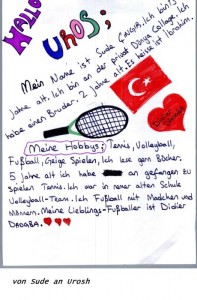 HALLO
UROS;
Mein Name ist Sude
Jahre alt. Ich bin an der privat Dünya College. Ich
habe einen Bruder. 5 Jahre alt. Es heisst Ibrahim.
Meine Hobbys; Tennis, Volleyball,
Fußball, Geige Spielen, Ich lese gern Bücher.
5 Jahre alt ich habe an gefangen zu
spielen Tennis. Ich war in neuer alten Schule
Volleyball-Team. Ich Fußball mit Mädchen und
Männern. Meine Lieblings-Fußballer ist Didier
DROGBA.
von Sude an Urosh